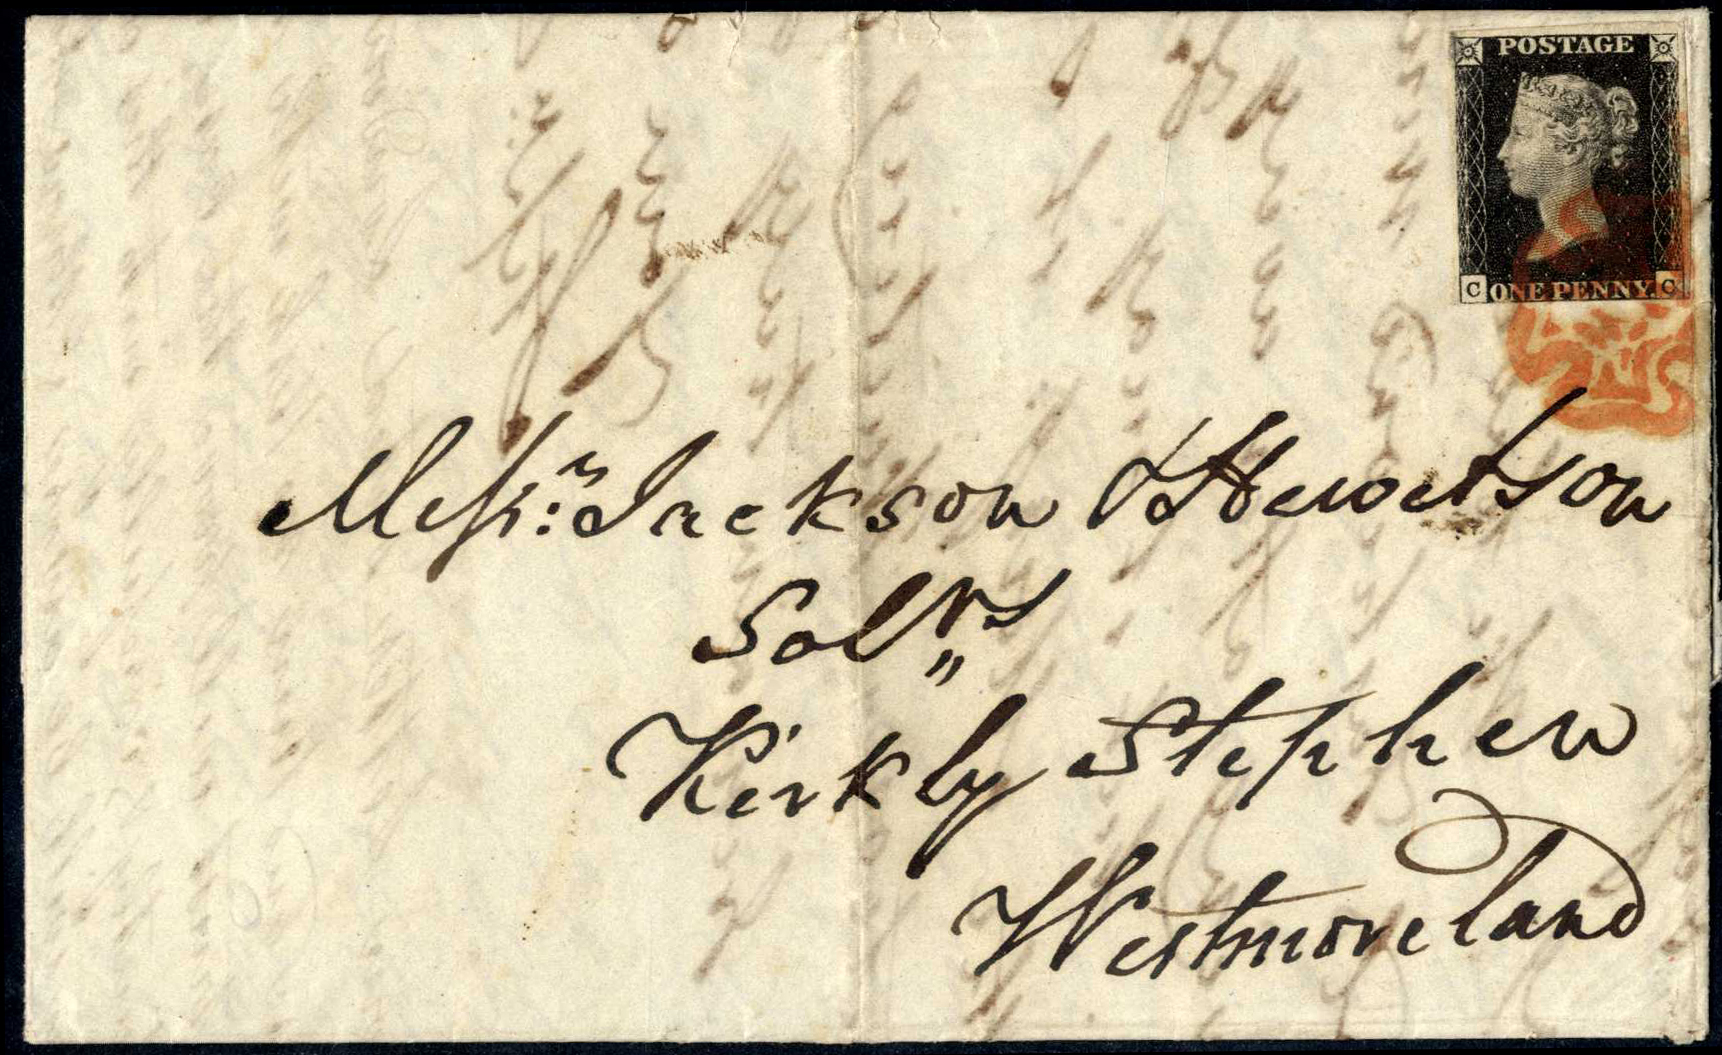 POSTAGE
C ONE PENNY. C
Messrs: Jackson & Hewetson
Solrs
Kirkby Stephen
Westmoreland